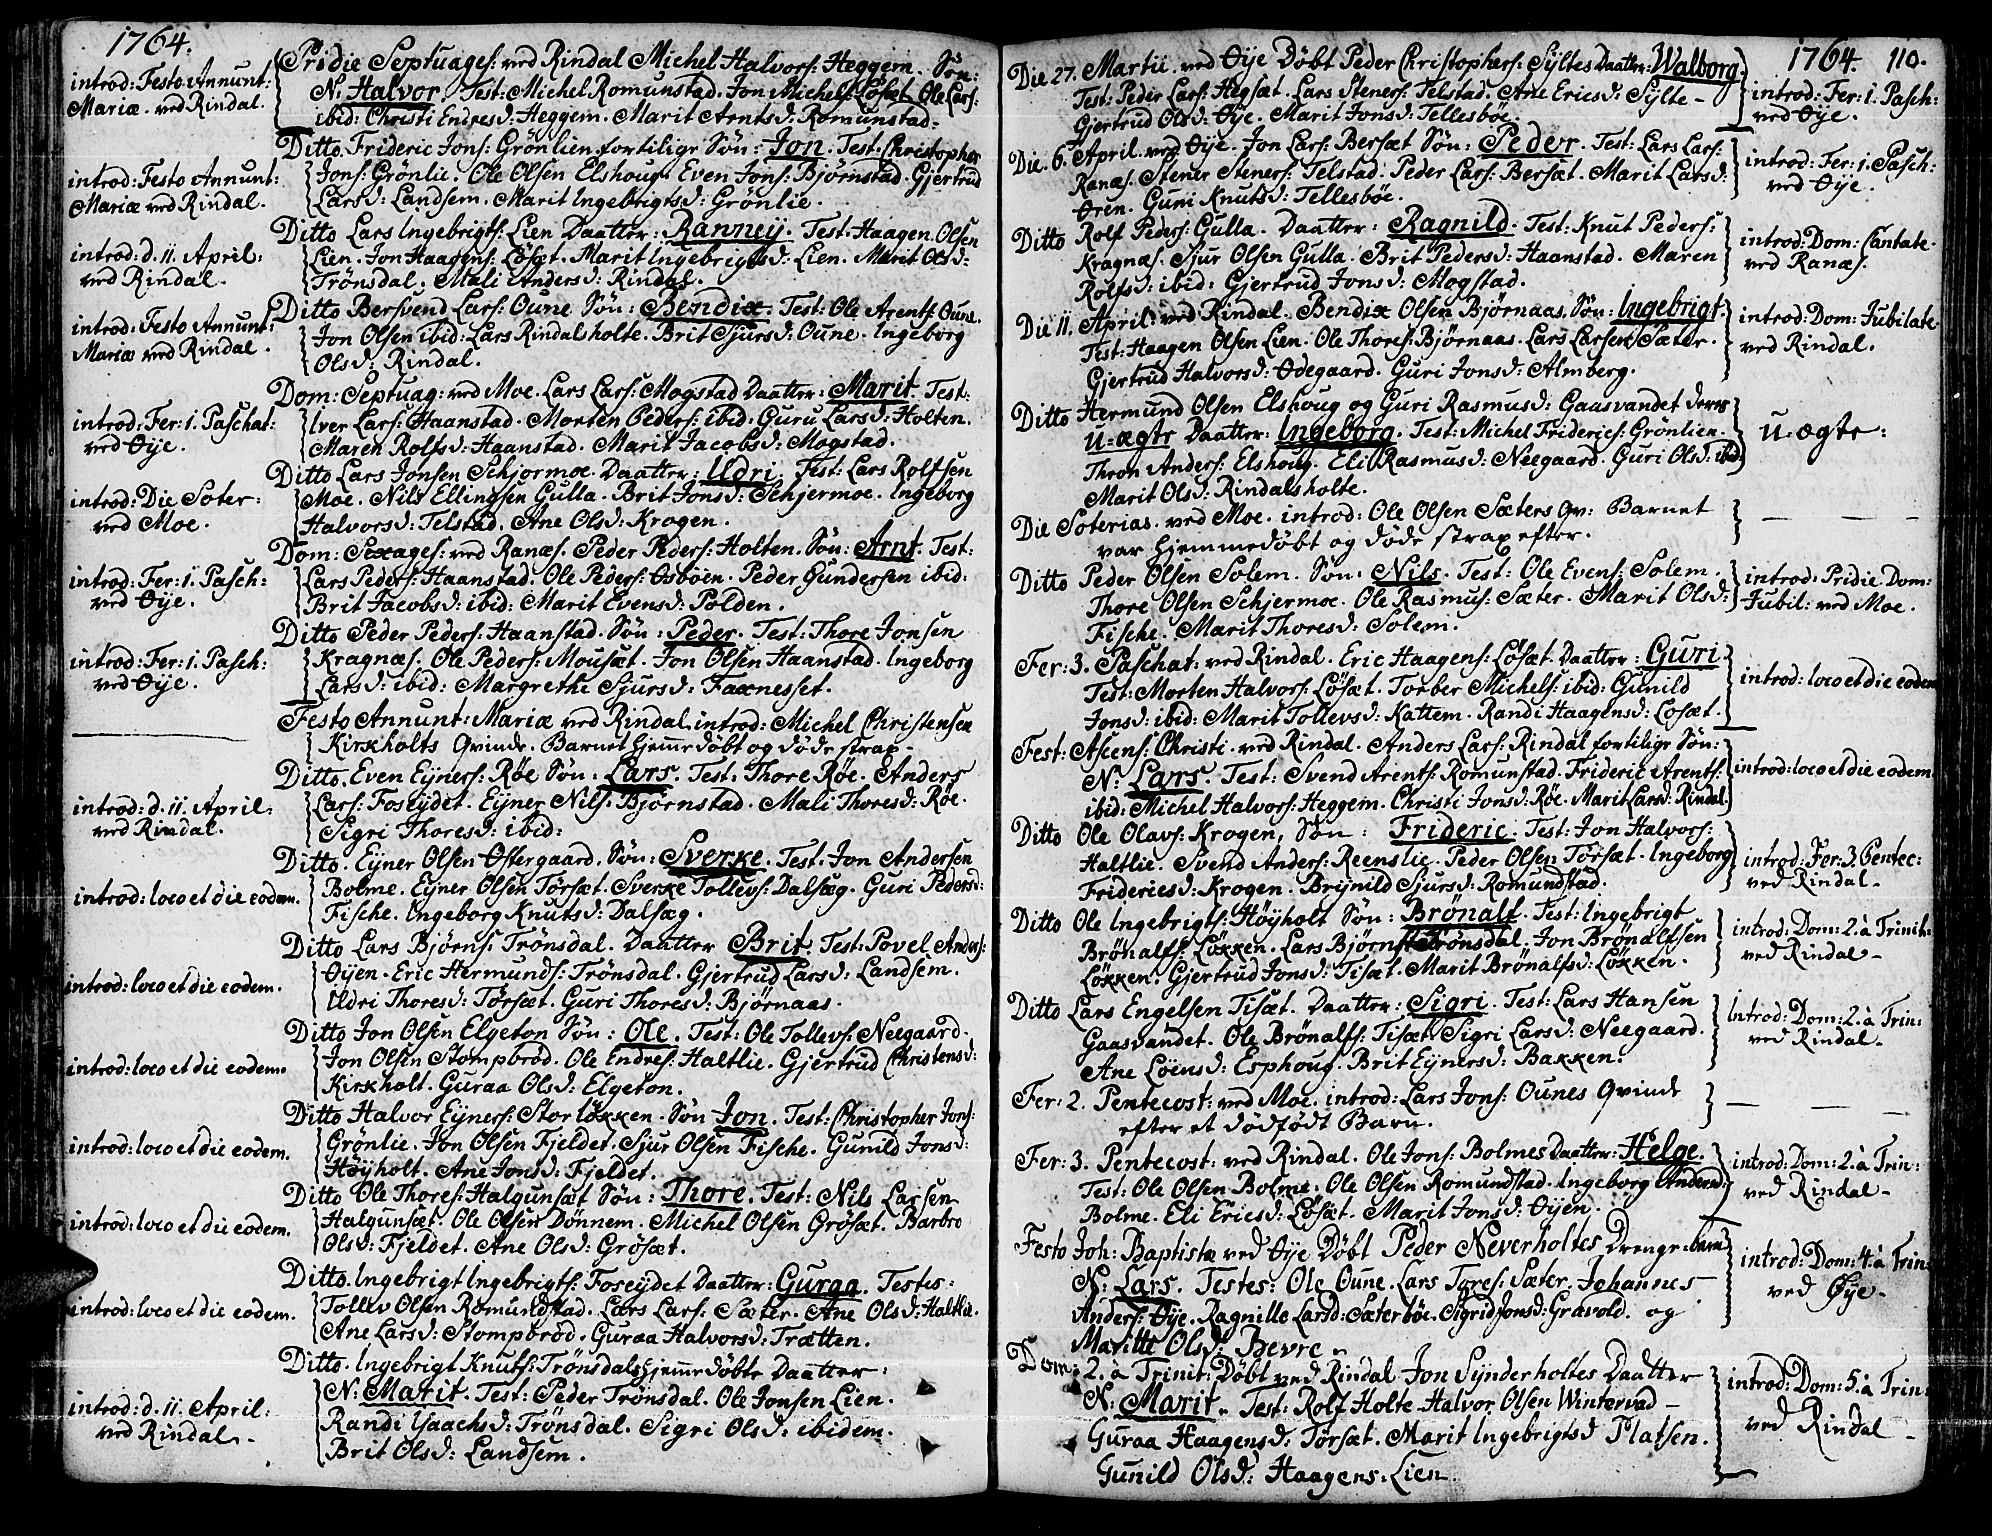 1764.
introd: Festo Annunt:
Mariæ. ved Rindal.
Pridie Septuages: ved Rindal Michel Halvors: Heggem. Søn:
N: Halvor. Test: Michel Romunstad. Jon Michels: Løsæt. Ole Lars:
ibid: Christi Endresd: Heggem. Marit Arntsd: Romunstad.
introd: Festo Annunt:
Mariæ ved Rindal.
Ditto. Frideric Jons: Grönlien fortilige Søn: Jon. Test: Christopher
Jons: Grönlie. Ole Olsen Elshoug. Even Jons: Björnstad. Gjertrud
Larsd: Landsem. Marit Ingebrigtsd: Grönlie.
introd: d. 11. April:
ved Rindal.
Ditto Lars Ingebrigts: Lien Daatter: Ranneÿ. Test: Haagen Olsen
Lien. Jon Haagens: Løsæt. Marit Ingebrigtsd: Lien. Marit Olsd:
Trönsdal. Mali Andersd: Rindal.
introd: Festo Annunt:
Mariæ ved Rindal.
Ditto Bersvend Lars: Oune Søn: Bendix. Test: Ole Arents: Oune.
Jon Olsen ibid: Lars Rindalsholte. Brit Sjursd: Oune. Ingeborg
Olsd: Rindal.
introd: Fer: 1. Paschat:
ved Øÿe.
Dom: Septuag: ved Moe. Lars Lars: Mogstad Daatter: Marit. Test:
Iver Lars: Haanstad. Morten Peders: ibid: Guru Larsd: Holten.
Maren Rolfsd: Haanstad. Marit Jacobsd: Mogstad.
introd: Die Soter:
ved Moe.
Ditto Lars Jonsen Schjermoe. Daatter: Uldri. Test: Lars Rolfsen
Moe. Nils Ellingsen Gulla. Brit Jonsd: Schjermoe. Ingeborg
Halvorsd: Telstad. Ane Olsd: Krogen.
introd: Fer: 1. Pasch:
ved Øÿe.
Dom: Sexages: ved Ranæs. Peder Peders: Holten. Søn: Arnt. Test:
Lars Peders: Haanstad. Ole Peders: Osböen. Peder Gundersen ibid:
Brit Jacobsd: ibid: Marit Evensd: Polden.
introd: Fer: 1. Pasch:
ved Øÿe.
Ditto Peder Peders: Haanstad. Søn: Peder. Test: Thore Jonsen
Kragnæs. Ole Peders: Mousæt. Jon Olsen Haanstad. Ingeborg
Larsd: ibid: Margrethe Sjursd: Faxnesset.
Festo Annunt: Mariæ ved Rindal. introd: Michel Christensen
Kirkholts Qvinde. Barnet hjemedöbt og döde strax.
introd: d. 11. April:
ved Rindal.
Ditto. Even Eÿners: Røe Søn: Lars. Test: Thore Røe. Anders
Lars: Foseÿdet. Eÿner Nils: Björnstad. Mali Thoresd: Røe.
Sigri Thoresd: ibid:
introd: loco et die eodem.
Ditto. Eÿner Olsen Østergaard. Søn: Sverke. Test: Jon Andersen
Bolme. Eÿner Olsen Törsæt. Sverke Tollevs: Dalsæg. Guri Pedersd:
Fische. Ingeborg Knutsd: Dalsæg.
introd: loco et die eodem.
Ditto Lars Björns: Trönsdal. Daatter Brit Test: Povel Anders:
Øÿen. Eric Hermunds: Trönsdal. Gjertrud Larsd: Landsem.
Uldri Thoresd: Törsæt. Guri Thoresd: Björnaas.
introd: loco et die eodem.
Ditto Jon Olsen Elgeton Søn: Ole. Test: Ole Tollevs: Neegaard.
Jon Olsen Stompbröd. Ole Endres: Haltlie. Gjertrud Christensd:
Kirkholt. Guraa Olsd: Elgeton.
introd: loco et die eodem.
Ditto Halvor Eÿners: Storløkken. Søn Jon. Test: Christopher Jons:
Grönlie. Jon Olsen Fjeldet. Sjur Olsen Fische. Gunild Jonsd:
Høÿholt. Ane Jonsd: Fjeldet.
introd: loco et die eodem.
Ditto Ole Thores: Halgunsæt Søn: Thore. Test: Nils Larsen
Halgunsæt. Ole Olsen Dönnem. Michel Olsen Grösæt. Barbro
Olsd: Fjeldet. Ane Olsd: Grösæt.
introd: loco et die eodem.
Ditto. Ingebrigt Ingebrigts: Foseÿdet Daatter: Guraa. Testes:
Tollev Olsen Romundstad. Lars Lars: Sæter. Ane Olsd: Haltlie.
Ane Larsd: Stompbröd. Guraa Halvorsd: Trætten.
introd: d. 11. April:
ved Rindal.
Ditto. Ingebrigt Knuts: Trönsdals hjemedöbte Daatter:
N: Marit. Test: Peder Trönsdal. Ole Jonsen Lien.
Randi Isaachsd: Trönsdal. Sigri Olsd: ibidem.
Brit Olsd: Landsem.
1764. 110.
Die 27. Martii ved Øÿe Döbt Peder Christophers: Sÿltes Daatter: Walborg.
Test: Peder Lars: Hegsæt. Lars Steners: Telstad. Ane Ericsd: Sylte
Gjertrud Olsd: Øÿe. Marit Jonsd: Tellesböe.
introd: Fer: 1. Pasch:
ved Øÿe.
Die. 6. April. ved Øÿe. Jon Lars: Bersæt Søn: Peder. Test: Lars Lars:
Ranæs. Stener Steners: Telstad. Peder Lars: Bersæt. Marit Larsd:
Øren. Guri Knutsd: Tellesböe.
introd: Fer: 1. Pasch:
ved Øÿe.
Ditto Rolf Peders: Gulla. Daatter: Ragnild. Test: Knut Peders:
Kragnæs. Sjur Olsen Gulla. Brit Pedersd: Haanstad. Maren
Rolfsd: ibid: Gjertrud Jonsd: Mogstad.
introd: Dom: Cantate.
ved Ranæs.
Die 11. April: ved Rindal. Bendix Olsen Björnaas. Søn: Ingebrigt.
Test: Haagen Olsen Lien. Ole Thores: Björnaas. Lars Larsen Sæter.
Gjertrud Halvorsd: Ødegaard. Guri Jonsd: Almberg.
introd: Dom: Jubilate.
ved Rindal.
Ditto Hermund Olsen Elshoug og Guri Rasmusd: Gaasvandet deres
u-ægte Daatter: Ingeborg. Test: Michel Friderics: Grönlien.
Thron Anders: Elshoug. Eli Rasmusd: Neegaard. Guri Olsd: ibid:
Marit Olsd: Rindalsholte.
u-ægte:
Die Soterias. ved Moe. introd: Ole Olsen Sæters Qv: Barnet
var hjemmedöbt og döde strax efter.
Ditto Peder Olsen Solem. Søn: Nils. Test: Ole Evens: Solem.
Thore Olsen Schjermoe. Ole Rasmus: Sæter. Marit Olsd:
Fische. Marit Thoresd: Solem.
introd: Pridie Dom:
Jubil: ved Moe.
Fer: 3. Paschat: ved Rindal. Eric Haagens: Løsæt. Daatter: Guri
Test: Morten Halvors: Løsæt. Torber Michels: ibid: Gunild
Jonsd: ibid: Marit Tollevsd: Kattem. Randi Haagensd: Løsæt.
introd: loco et die eodem
Fest: Ascens: Christi. ved Rindal. Anders Lars: Rindal fortilige Søn:
N: Lars. Test: Svend Arents: Romunstad. Frideric Arents:
ibid: Michel Halvors: Heggem. Christi Jonsd: Røe. Marit Larsd: Rindal.
introd: loco et die eodem
Ditto Ole Olavs: Krogen, Søn: Frideric. Test: Jon Halvors:
Haltlie. Svend Anders: Reenslie. Peder Olsen Törsæt. Ingeborg
Fridericsd: Krogen. Brÿnild Sjursd: Romundstad.
introd: Fer: 3. Pentec:
ved Rindal.
Ditto Ole Ingebrigts: Høÿholt Søn: Brönalf. Test: Ingebrigt
Brönalfs: Løkken. Lars Björns: Trönsdal. Jon Brönalfsen
Løkken. Gjertrud Jonsd: Tisæt. Marit Brönalfsd: Løkken.
introd: Dom: 2. à Trinit:
ved Rindal
Ditto Lars Engelsen Tisæt. Daatter: Sigri. Test: Lars Hansen
Gaasvandet. Ole Brönalfs: Tisæt. Sigri Larsd: Neegaard.
Ane Löensd: Esphoug. Brit Eÿnersd: Bakken.
Introd: Dom: 2. à Trin:
ved Rindal.
Fer: 2. Pentecost: ved Moe. introd: Lars Jons: Ounes Qvinde
efter et dödfödt Barn.
Fer: 3. Pentecost: ved Rindal. Ole Jons: Bolmes Daatter: Helge.
Test: Ole Olsen Bolme. Ole Olsen Romundstad. Ingeborg Andersd:
Bolme. Eli Ericsd: Løsæt. Marit Jonsd: Øÿen.
introd: Dom: 2. à Trin:
ved Rindal
Festo Joh: Baptistæ ved Øÿe Döbt Peder Neverholtes Drenge-barn
N: Lars. Testes: Ole Oune. Lars Tores: Sæter. Johannes
Anders: Øÿe. Ragnille Larsd: Sæterböe. Sigrid Jonsd: Gravold. og
Maritte Olsd: Bevre
introd: Dom: 4. à Trin:
ved Øÿe
Dom: 2. à Trinit: Döbt ved Rindal Jon Synderholtes Daatter
N: Marit. Test: Rolf Holte. Halvor Olsen Wintervad
Guraa Haagensd: Törsæt. Marit Ingebrigtsd Platsen.
Gunild Olsd: Haagens: Lien
introd: Dom: 5. à Trin:
ved Rindal